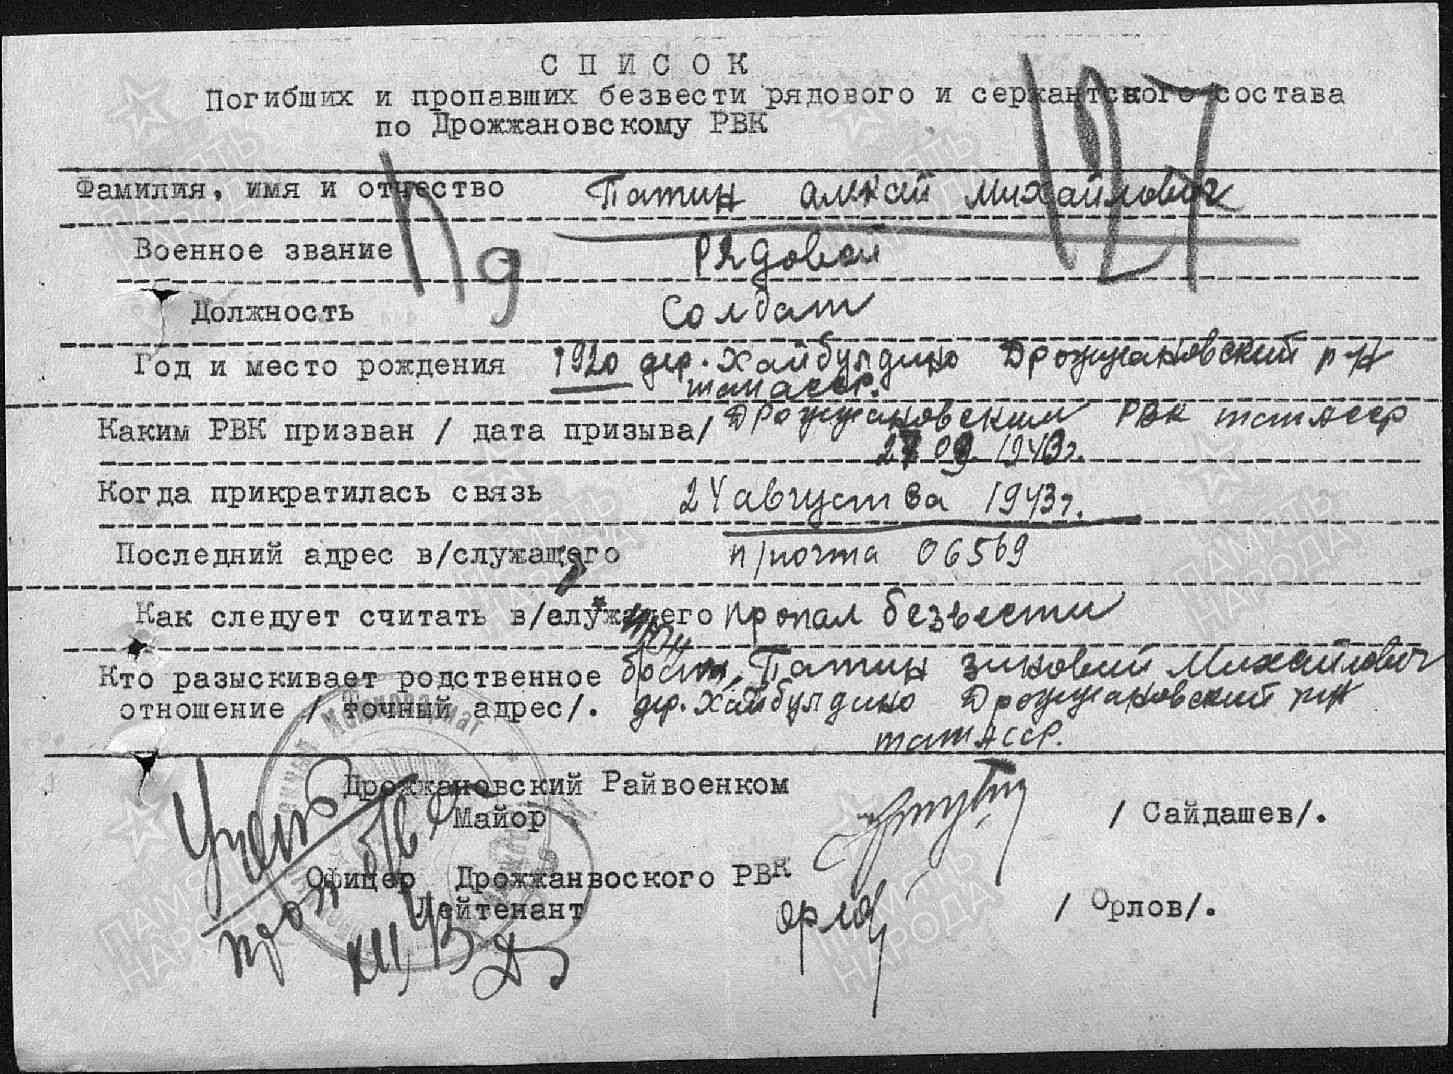 СПИСОК
Погибших и пропавших безвести рядового и сержантского состава
по Дрожжановскому РВК
127
Фамилия, имя и отчество Патин Алексей Михайлович
Военное звание Рядовой
Должность Солдат
Год и место рождения 1920 дер. Хайбулдино Дрожжановский р-н
тат АССР.
Каким РВК призван / дата призыва/ Дрожжановским РВК тат АССР
1943г.
Когда прикратилась связь 24 августва 1943г.
Последний адрес в/служащего п/почта 06569
Как следует считать в/служащего пропал безвести
Кто разыскивает родственное брат, Патин Зиновий Михайлович
отношение / точный адрес/. дер. Хайбулдино Дрожжановский р-н
тат АССР.
Дрожжановский Райвоенком
Майор / Сайдашев/.
Учтен
проп б/в
XII 43
Офицер Дрожжанвоского РВК
Лейтенант Орлов / Орлов/.
ПАМЯТЬ НАРОДА